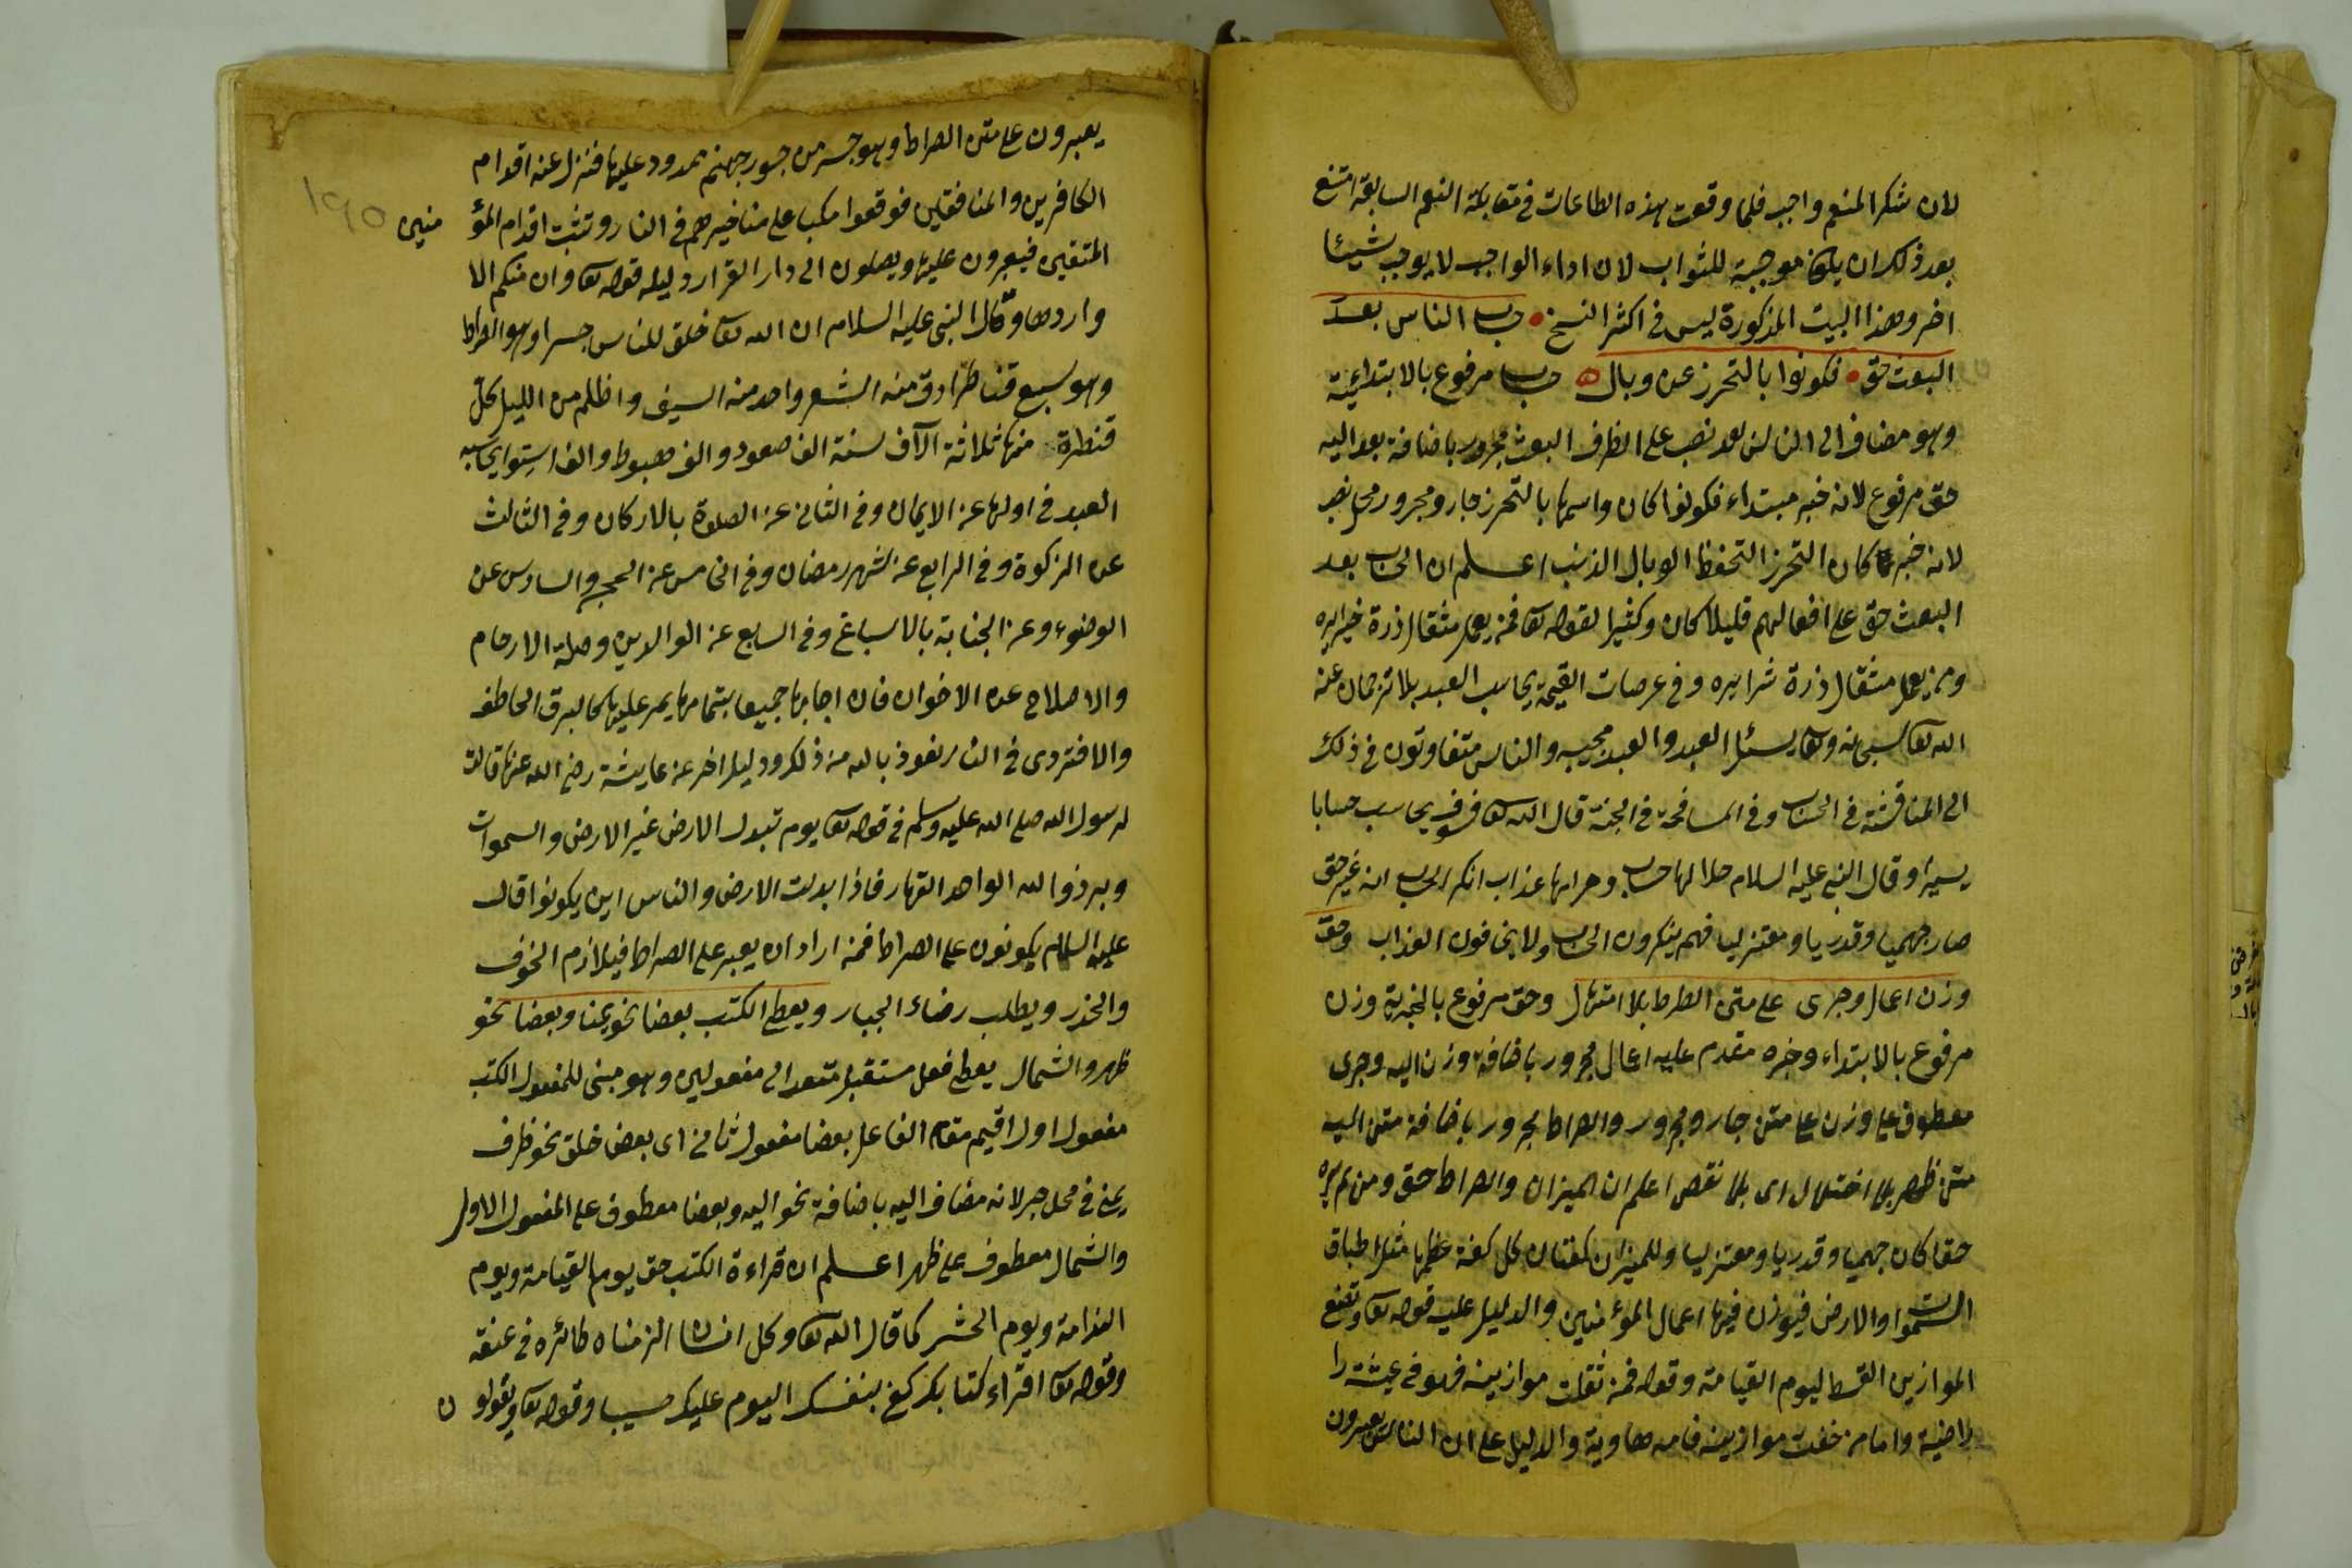 لان شكر المنعم واجب فلما وقعت هذه الطاعات فى مقابلة النعم السابقة امتنع
بعد ذلك ان يكون موجبة للثواب لان اداء الواجب لا يوجب شيئا
اخر وهذا البيت المذكورة ليس فى اكثر النسخ حساب الناس بعد
البعث حق فكونوا بالتحرز عن وبال حساب مرفوع بالابتدائية
وهو مضاف الى الناس بعد نصب على الظرف البعث مجرور باضافة بعد اليه
حق مرفوع لانه خبر مبتداء فكونوا كان واسمها بالتحرز جار ومجرور محل نصب
لانه خبر كان التحرز التحفظ الوبال الذنب اعلم ان الحساب بعد
البعث حق على افعالهم قليلا كان وكثيرا لقوله تعا فمن يعمل مثقال ذرة خيرا يره
ومن يعمل مثقال ذرة شرا يره وفى عرصات القيمة يحاسب العبد بلا ترجمان عنه
الله تعا سبحانه وتعا يسئل العبد والعبد مجيب والناس متفاوتون فى ذلك
الى المناقشة فى الحساب وفى المسافحة فى الجنة قال الله تعا فسوف يحاسب حسابا
يسيرا وقال النبى عليه السلام حلالها حساب وحرامها عذاب انكر الحساب انه غير حق
صار جهميا وقدريا ومعتزليا فهم ينكرون الحساب ولا يخافون العذاب وحق
وزن اعمال وجرى على متن الصراط بلا اهتبال وحق مرفوع بالخبرية وزن
مرفوع بالابتداء وخبره مقدم عليه اعمال مجرور باضافة وزن اليه وجرى
معطوف على وزن على متن جار ومجرور والصراط مجرور باضافة متن اليه
متن ظهر بلا اختلال اى بلا نقص اعلم ان الميزان والصراط حق ومن لم يره
حقا كان جهميا وقدريا ومعتزليا وللميزان كفتان كل كفة عظمها مثل اطباق
السموات والارض فيوزن فيها اعمال المؤمنين والدليل عليه قوله تعا ونضع
الموازين القسط ليوم القيامة وقوله فمن ثقلت موازينه فهو فى عيشة را
راضية واما من خفت موازينه فامه هاوية والدليل على ان الناس يعبرون
يعبرون على متن الصراط وهو جسر من جسور جهنم ممدود عليها فتزل عنه اقدام
الكافرين والمنافقين فوقعوا مكبا على مناخيرهم فى النار وتثبت اقدام المؤ منين
المتقين فيعبرون عليها ويصلون الى دار القرار دليله قوله تعا وان منكم الا
واردها وقال النبى عليه السلام ان الله تعا خلق للناس جسرا وهو الصراط
وهو سبع قناطر ادق من الشعر واحد من السيف واظلم من الليل كل
قنطرة منها ثلاثة الآف سنة الف صعود والف هبوط والف استوا يحاسب
العبد فى اولها عن الايمان وفى الثانى عن الصلوة بالاركان وفى الثالث
عن الزكوة وفى الرابع عن شهر رمضان وفى الخامس عن الحج والسادس عن
الوضوء وعن الجنابة بالاسباغ وفى السابع عن الوالدين وصلة الارحام
والاصلاح عن الاخوان فان اجابها جميعا بتمامها يمر عليها كالبرق الخاطف
والا فتردى فى النار نعوذ بالله من ذلك ودليل اخر عن عايشة رضى الله عنها قالت
لرسول الله صلى الله عليه وسلم فى قوله تعا يوم تبدل الارض غير الارض والسموات
وبرزوا لله الواحد القهار فاذا بدلت الارض والناس اين يكونوا قال
عليه السلام يكونون على الصراط فمن اراد ان يعبر على الصراط فيلازم الخوف
والحذر ويطلب رضاء الجبار ويعطى الكتب بعضا نحو يمنا وبعضا نحو
ظهر والشمال يعطى فعل مستقبل متعد الى مفعولين وهو مبنى للمفعول الكتب
مفعول اول اقيم مقام الفاعل بعضا مفعول ثانى اى بعض خلق نحو ظرف
يمنى فى محل جر لانه مضاف اليه باضافة نحو اليه وبعضا معطوف على المفعول الاول
والشمال معطوف على ظهر اعلم ان قراءة الكتب حق يوم القيامة ويوم
الندامة ويوم الحشر كما قال الله تعا وكل انسان الزمناه طائره فى عنقه
وقوله تعا اقراء كتابك كفى بنفسك اليوم عليك حسيبا وقوله تعا ويقولو ن
١٩٥